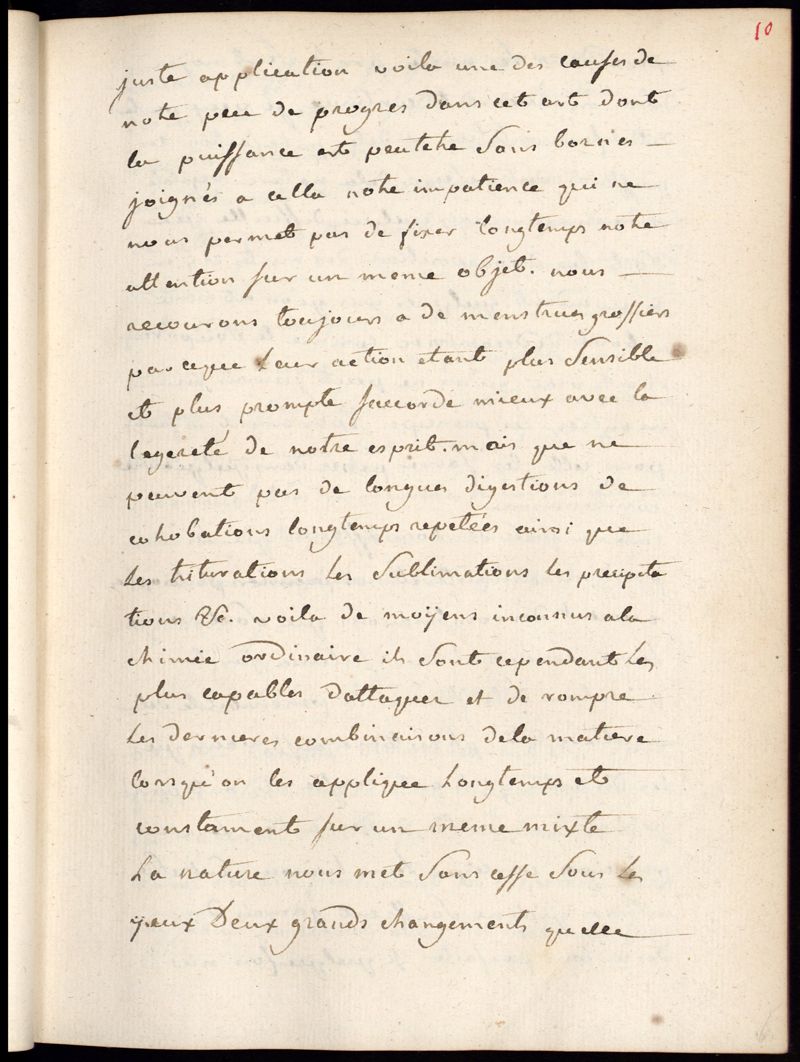 10
juste application voila une des causes de
notre peu de progres dans cet art dont
la puissance est peutetre sans bornes
joignés a cella notre impatience qui ne
nous permet pas de fixer longtemps notre
attention sur un meme objet. nous
recourons toujours a de menstrues grossiers
parceque leur action etant plus sensible
et plus prompte saccorde mieux avec la
legereté de notre esprit. mais que ne
peuvent pas de longues digestions de
cohobations longtemps repetées ainsi que
les triturations les sublimations les precipita
tions &c. voila de moÿens inconnus a la
chimie ordinaire ils sont cependant les
plus capables dattaquer et de rompre
les dernieres combinaisons dela matiere
lorsqu'on les applique longtemps et
constament sur un meme mixte
La nature nous met sans cesse sous les
yeux Deux grands changements quelle